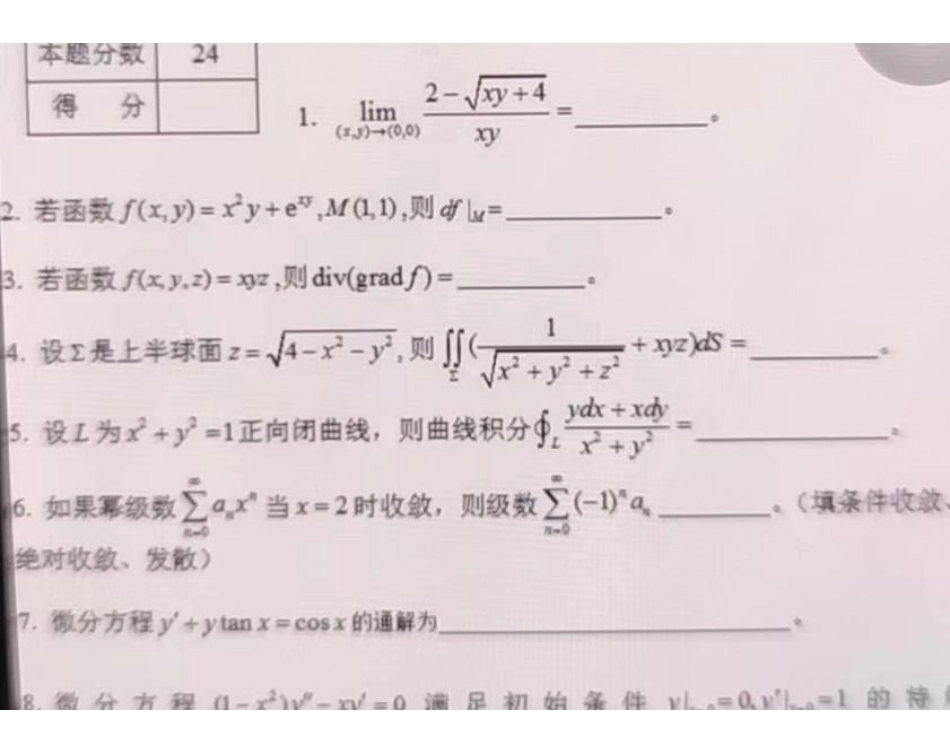 本题分数 24
得 分
1. lim_{(x,y)→(0,0)} (2-√(xy+4))/(xy) = ______。
2. 若函数 f(x,y)=x²y+e^{xy},M(1,1),则 df|_M=______。
3. 若函数 f(x,y,z)=xyz,则 div(grad f)=______。
4. 设Σ是上半球面 z=√(4-x²-y²),则 ∬_Σ(1/√(x²+y²+z²)+xyz)dS=______。
5. 设 L 为 x²+y²=1正向闭曲线，则曲线积分∮_L (ydx+xdy)/(x²+y²)=______。
6. 如果幂级数 ∑_{n=0}^{∞} a_n x^n 当 x=2时收敛，则级数 ∑_{n=0}^{∞} (-1)^n a_n ______。（填条件收敛、
绝对收敛、发散）
7. 微分方程 y′+y tan x=cos x 的通解为______。
8. 微分方程 (1-x²)y″-xy′=0 满足初始条件 y|_{x=0}=0,y′|_{x=0}=1 的特